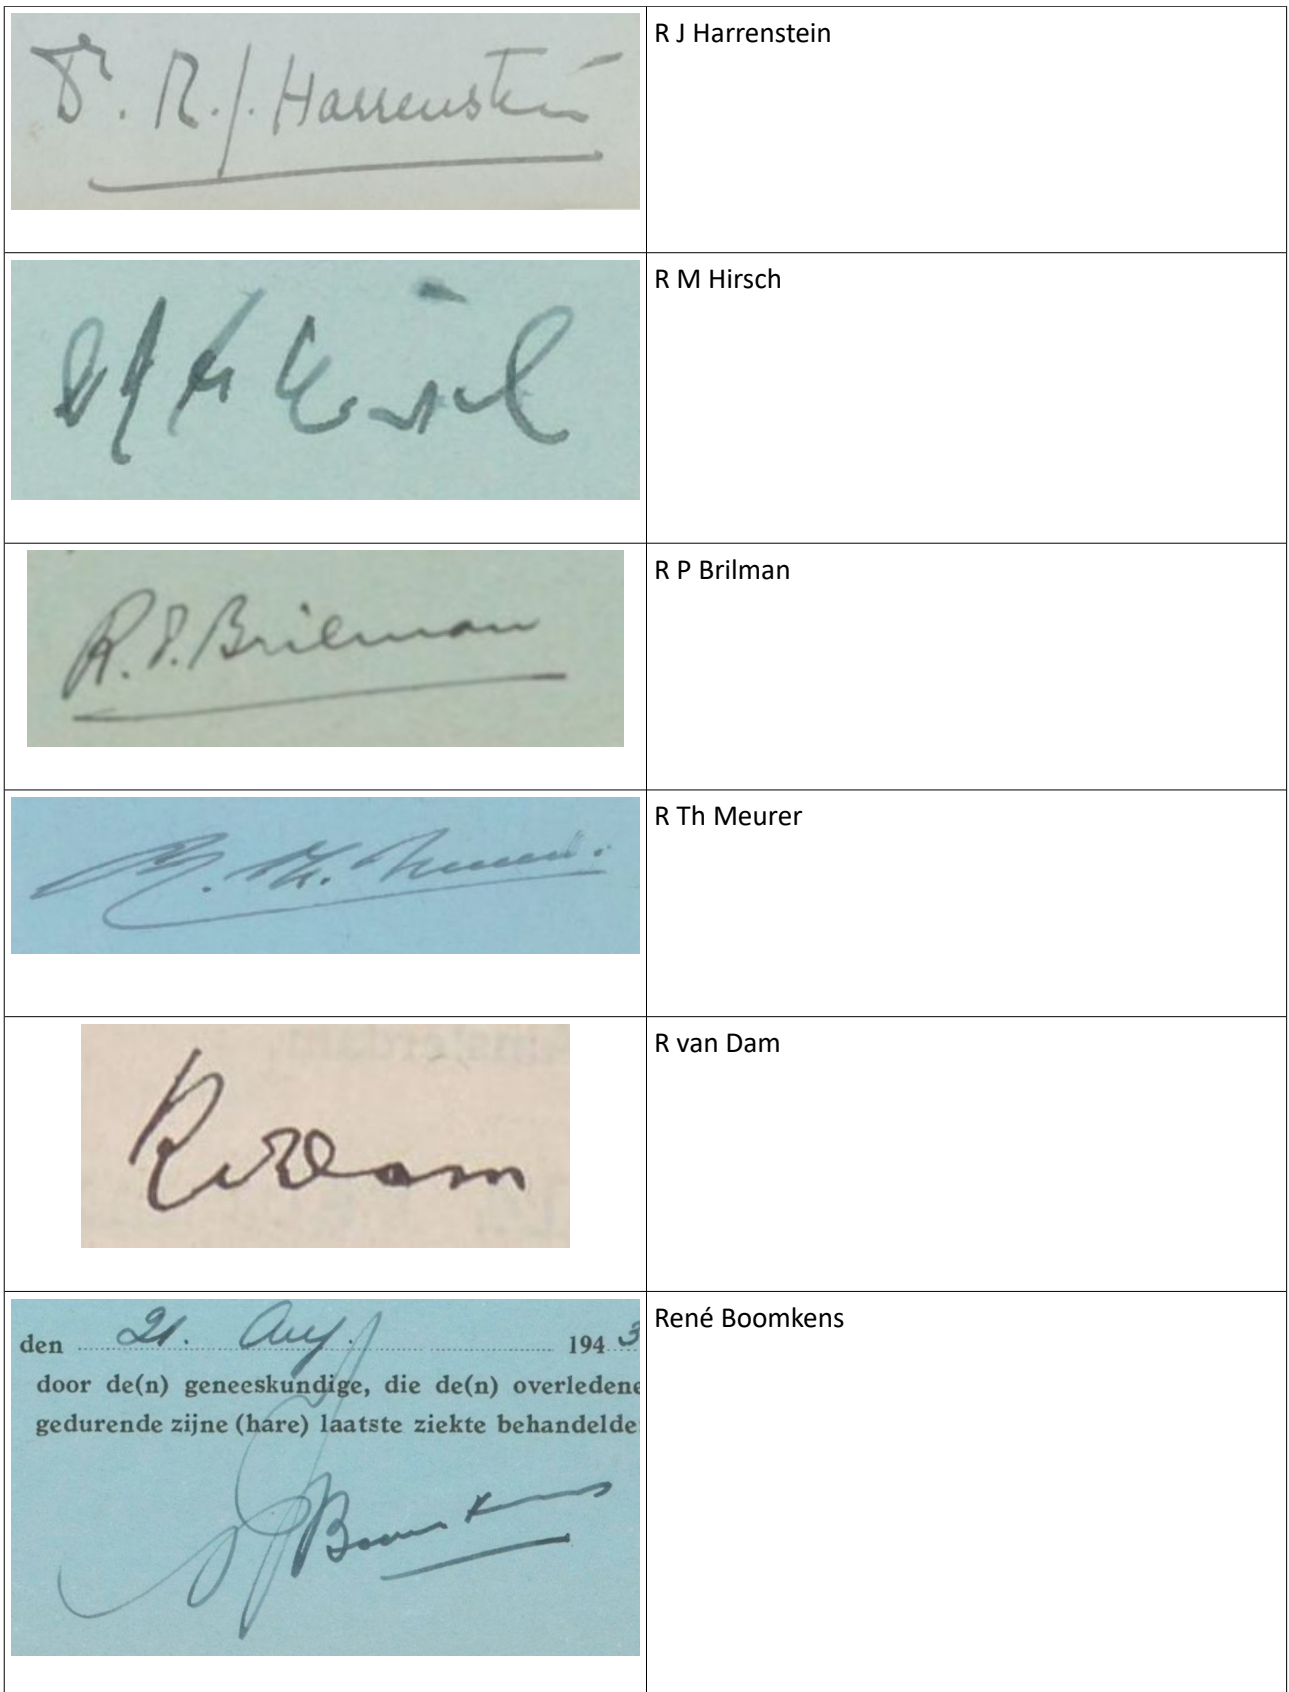 Dr. R. J. Harrenstein
R J Harrenstein
R M Hirsch
R. P. Brilman
R P Brilman
R. Th. Meurer.
R Th Meurer
R v Dam
R van Dam
René Boomkens
den 21. Aug. 194 3
door de(n) geneeskundige, die de(n) overledene
gedurende zijne (hare) laatste ziekte behandelde
Boomkens